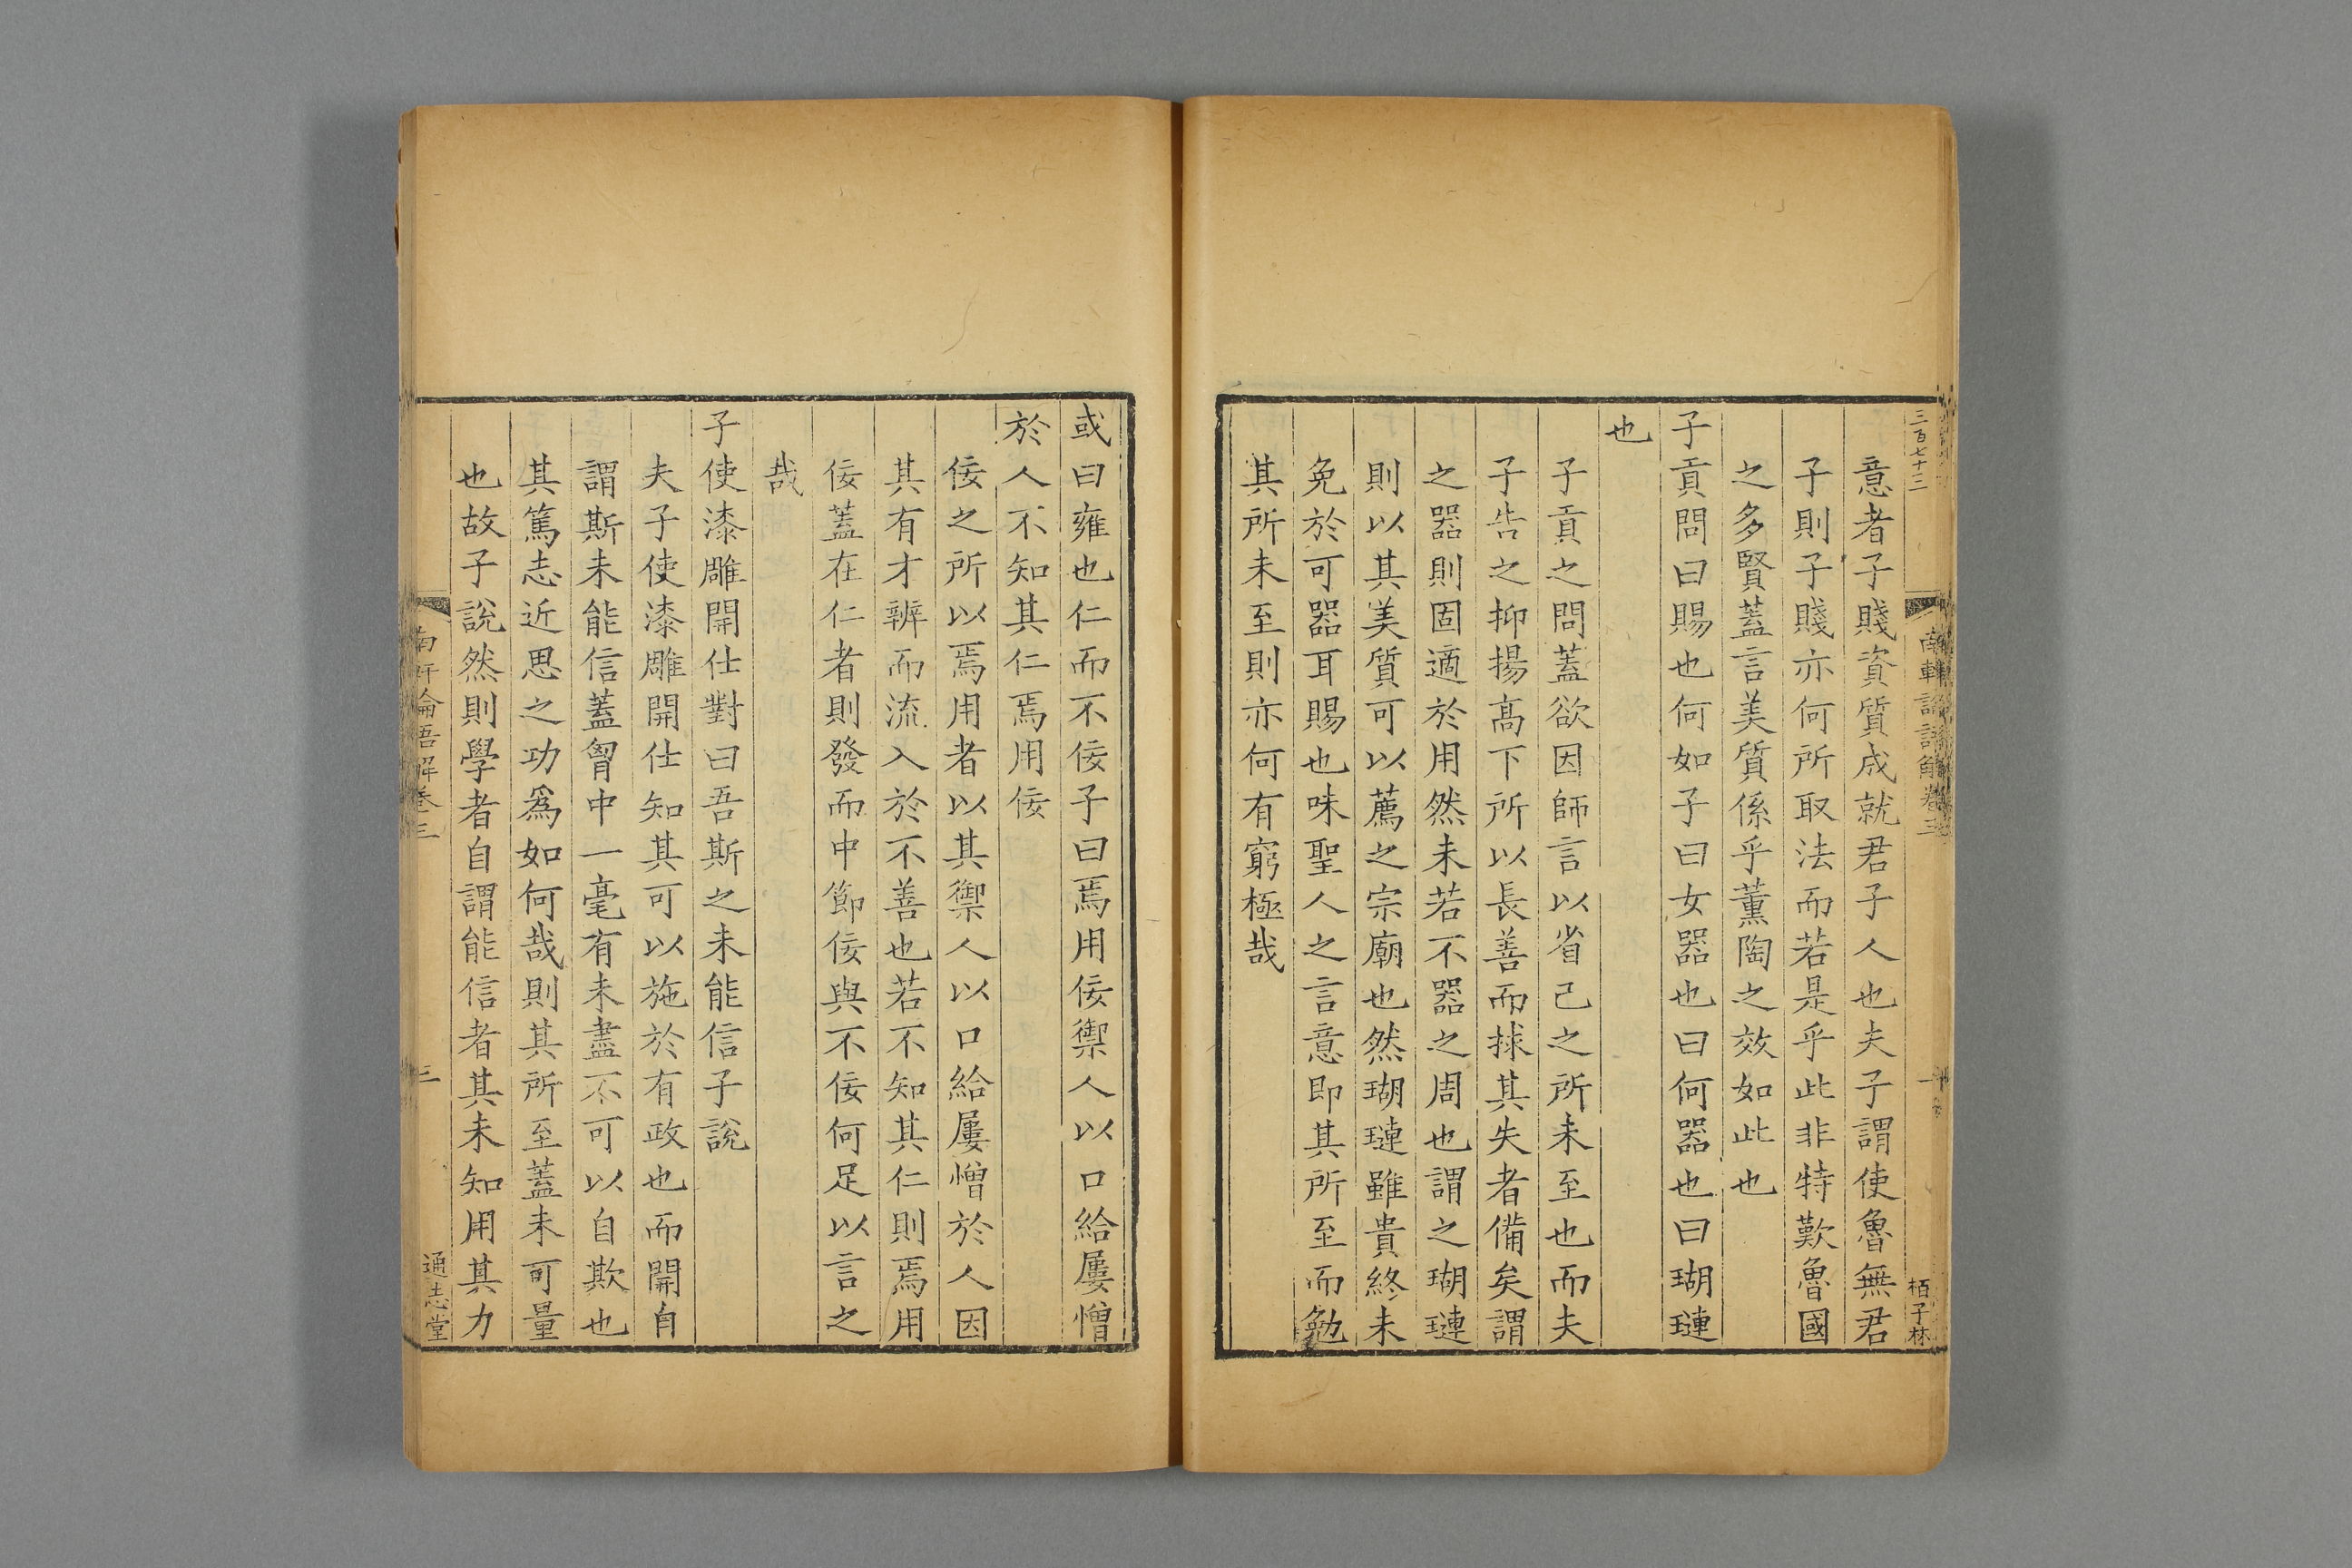 三百七十三
南軒論語解卷三
栢子林
意者子賤資質成就君子人也夫子謂使魯無君
子則子賤亦何所取法而若是乎此非特歎魯國
之多賢蓋言美質係乎薰陶之效如此也
子貢問曰賜也何如子曰女器也曰何器也曰瑚璉
也
子貢之問蓋欲因師言以省己之所未至也而夫
子告之抑揚髙下所以長善而捄其失者備矣謂
之器則固適於用然未若不器之周也謂之瑚璉
則以其美質可以薦之宗廟也然瑚璉雖貴終未
免於可器耳賜也味聖人之言意即其所至而勉
其所未至則亦何有窮極哉
或曰雍也仁而不佞子曰焉用佞禦人以口給屢憎
於人不知其仁焉用佞
佞之所以焉用者以其禦人以口給屢憎於人因
其有才辨而流入於不善也若不知其仁則焉用
佞蓋在仁者則發而中節佞與不佞何足以言之
哉
子使漆雕開仕對曰吾斯之未能信子說
夫子使漆雕開仕知其可以施於有政也而開自
謂斯未能信蓋胷中一毫有未盡不可以自欺也
其篤志近思之功爲如何哉則其所至蓋未可量
也故子說然則學者自謂能信者其未知用其力
南軒論語解卷三
三
通志堂